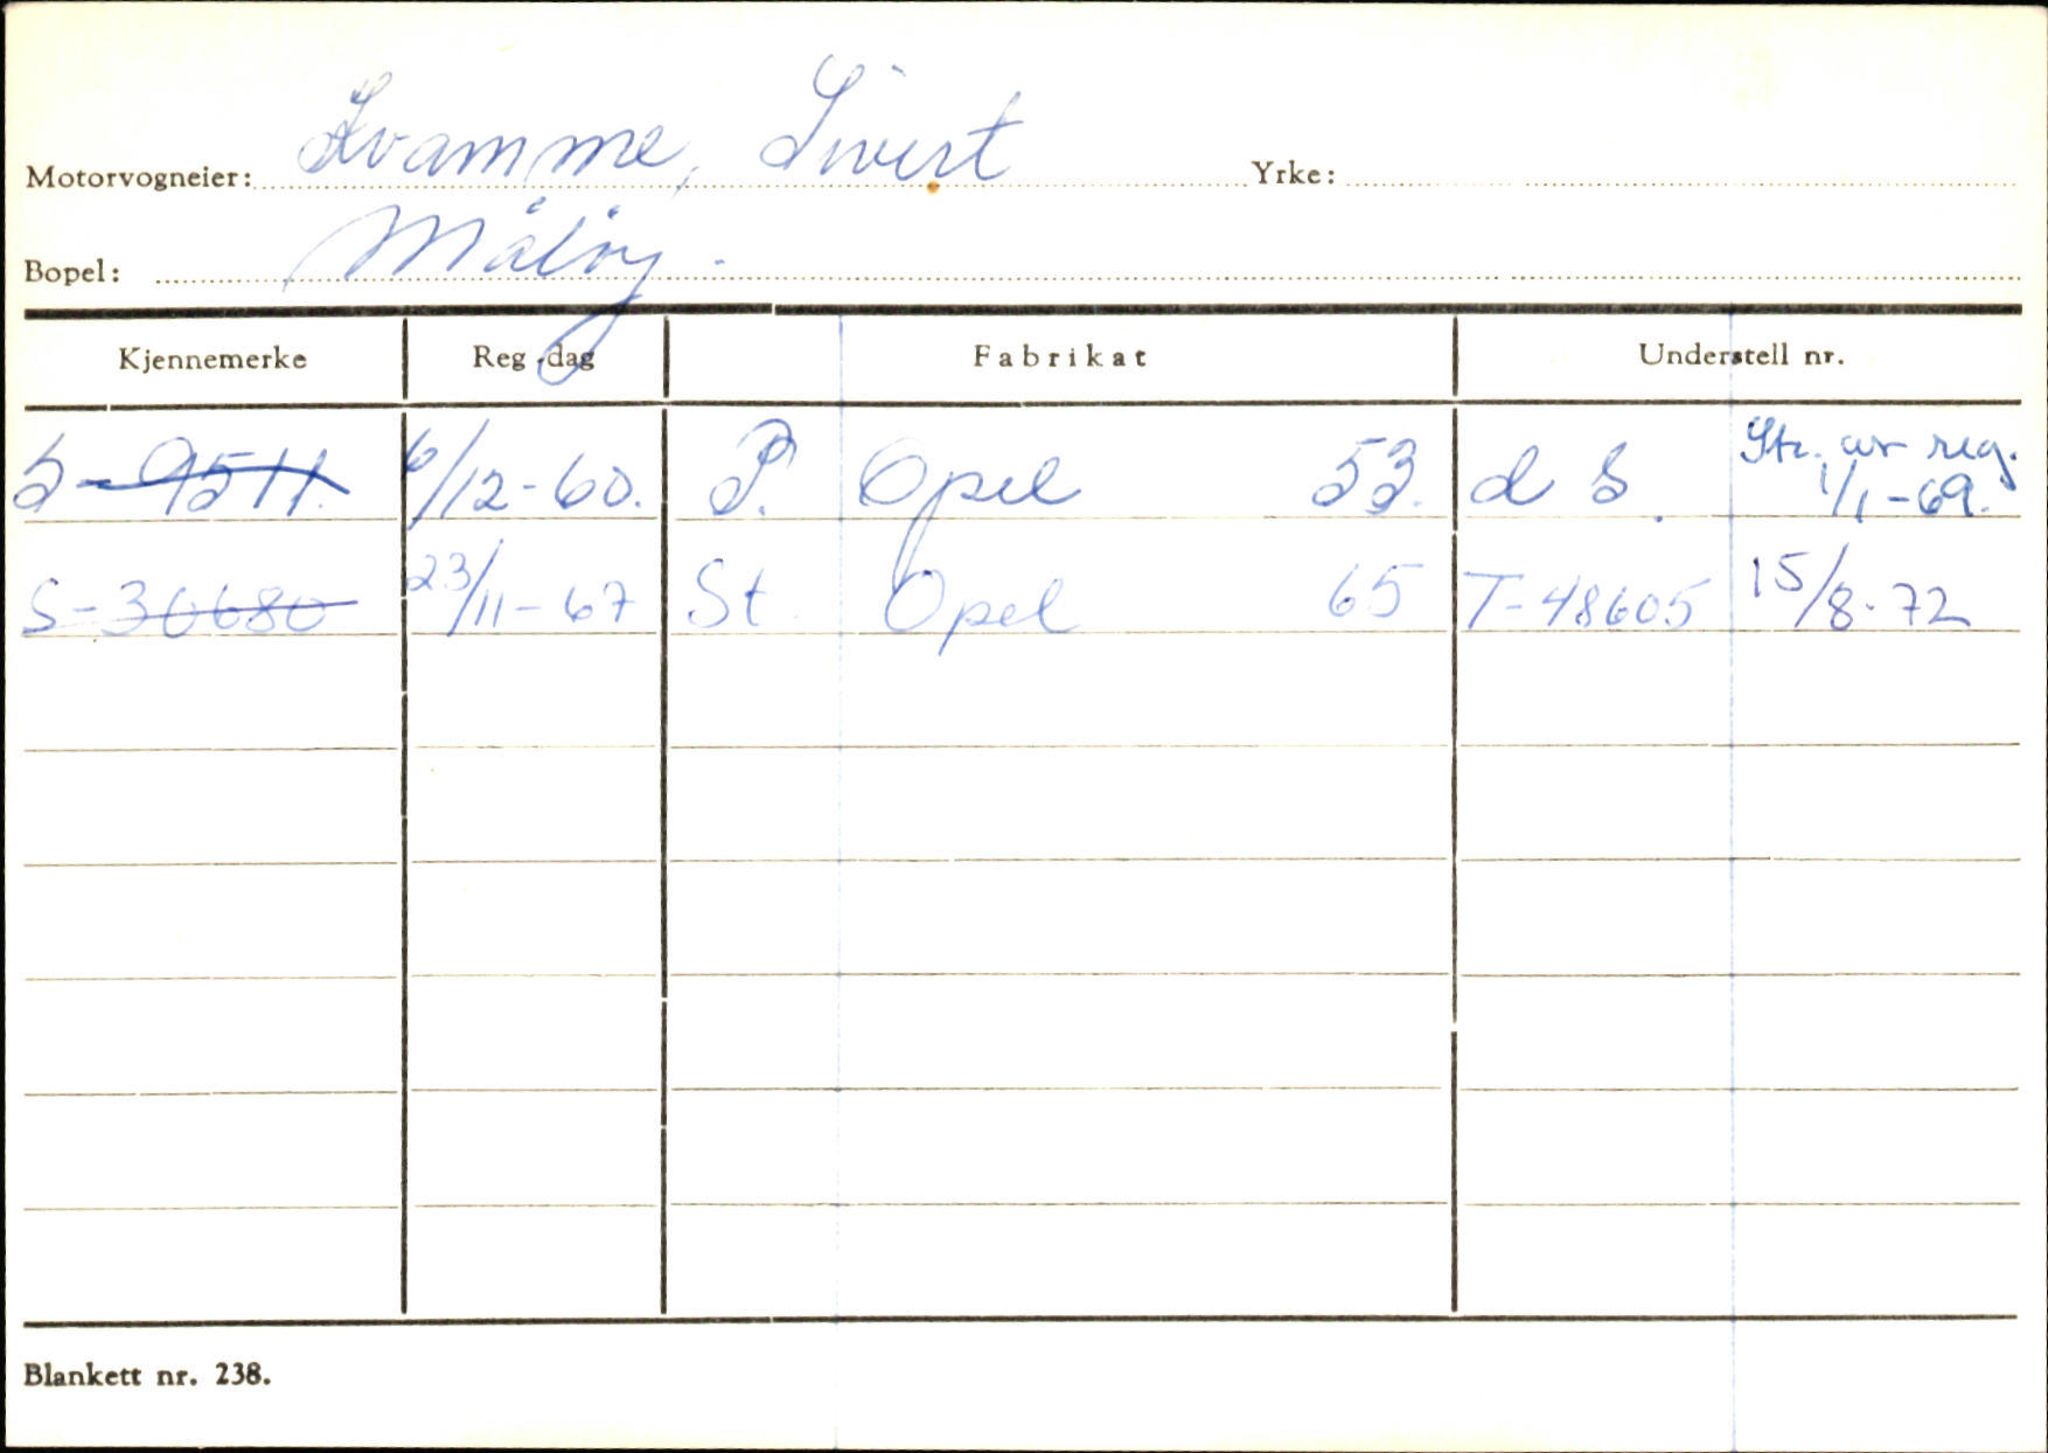 Motorvogneier: Kvamme, Sivert Yrke:
Bopel: Måløy.
Kjennemerke Reg.dag Fabrikat Understell nr.
S-9511. 6/12-60. P. Opel 53. d S. Str. av reg. 1/1-69.
S-30680 23/11-67 St. Opel 65 T-48605 15/8-72
Blankett nr. 238.